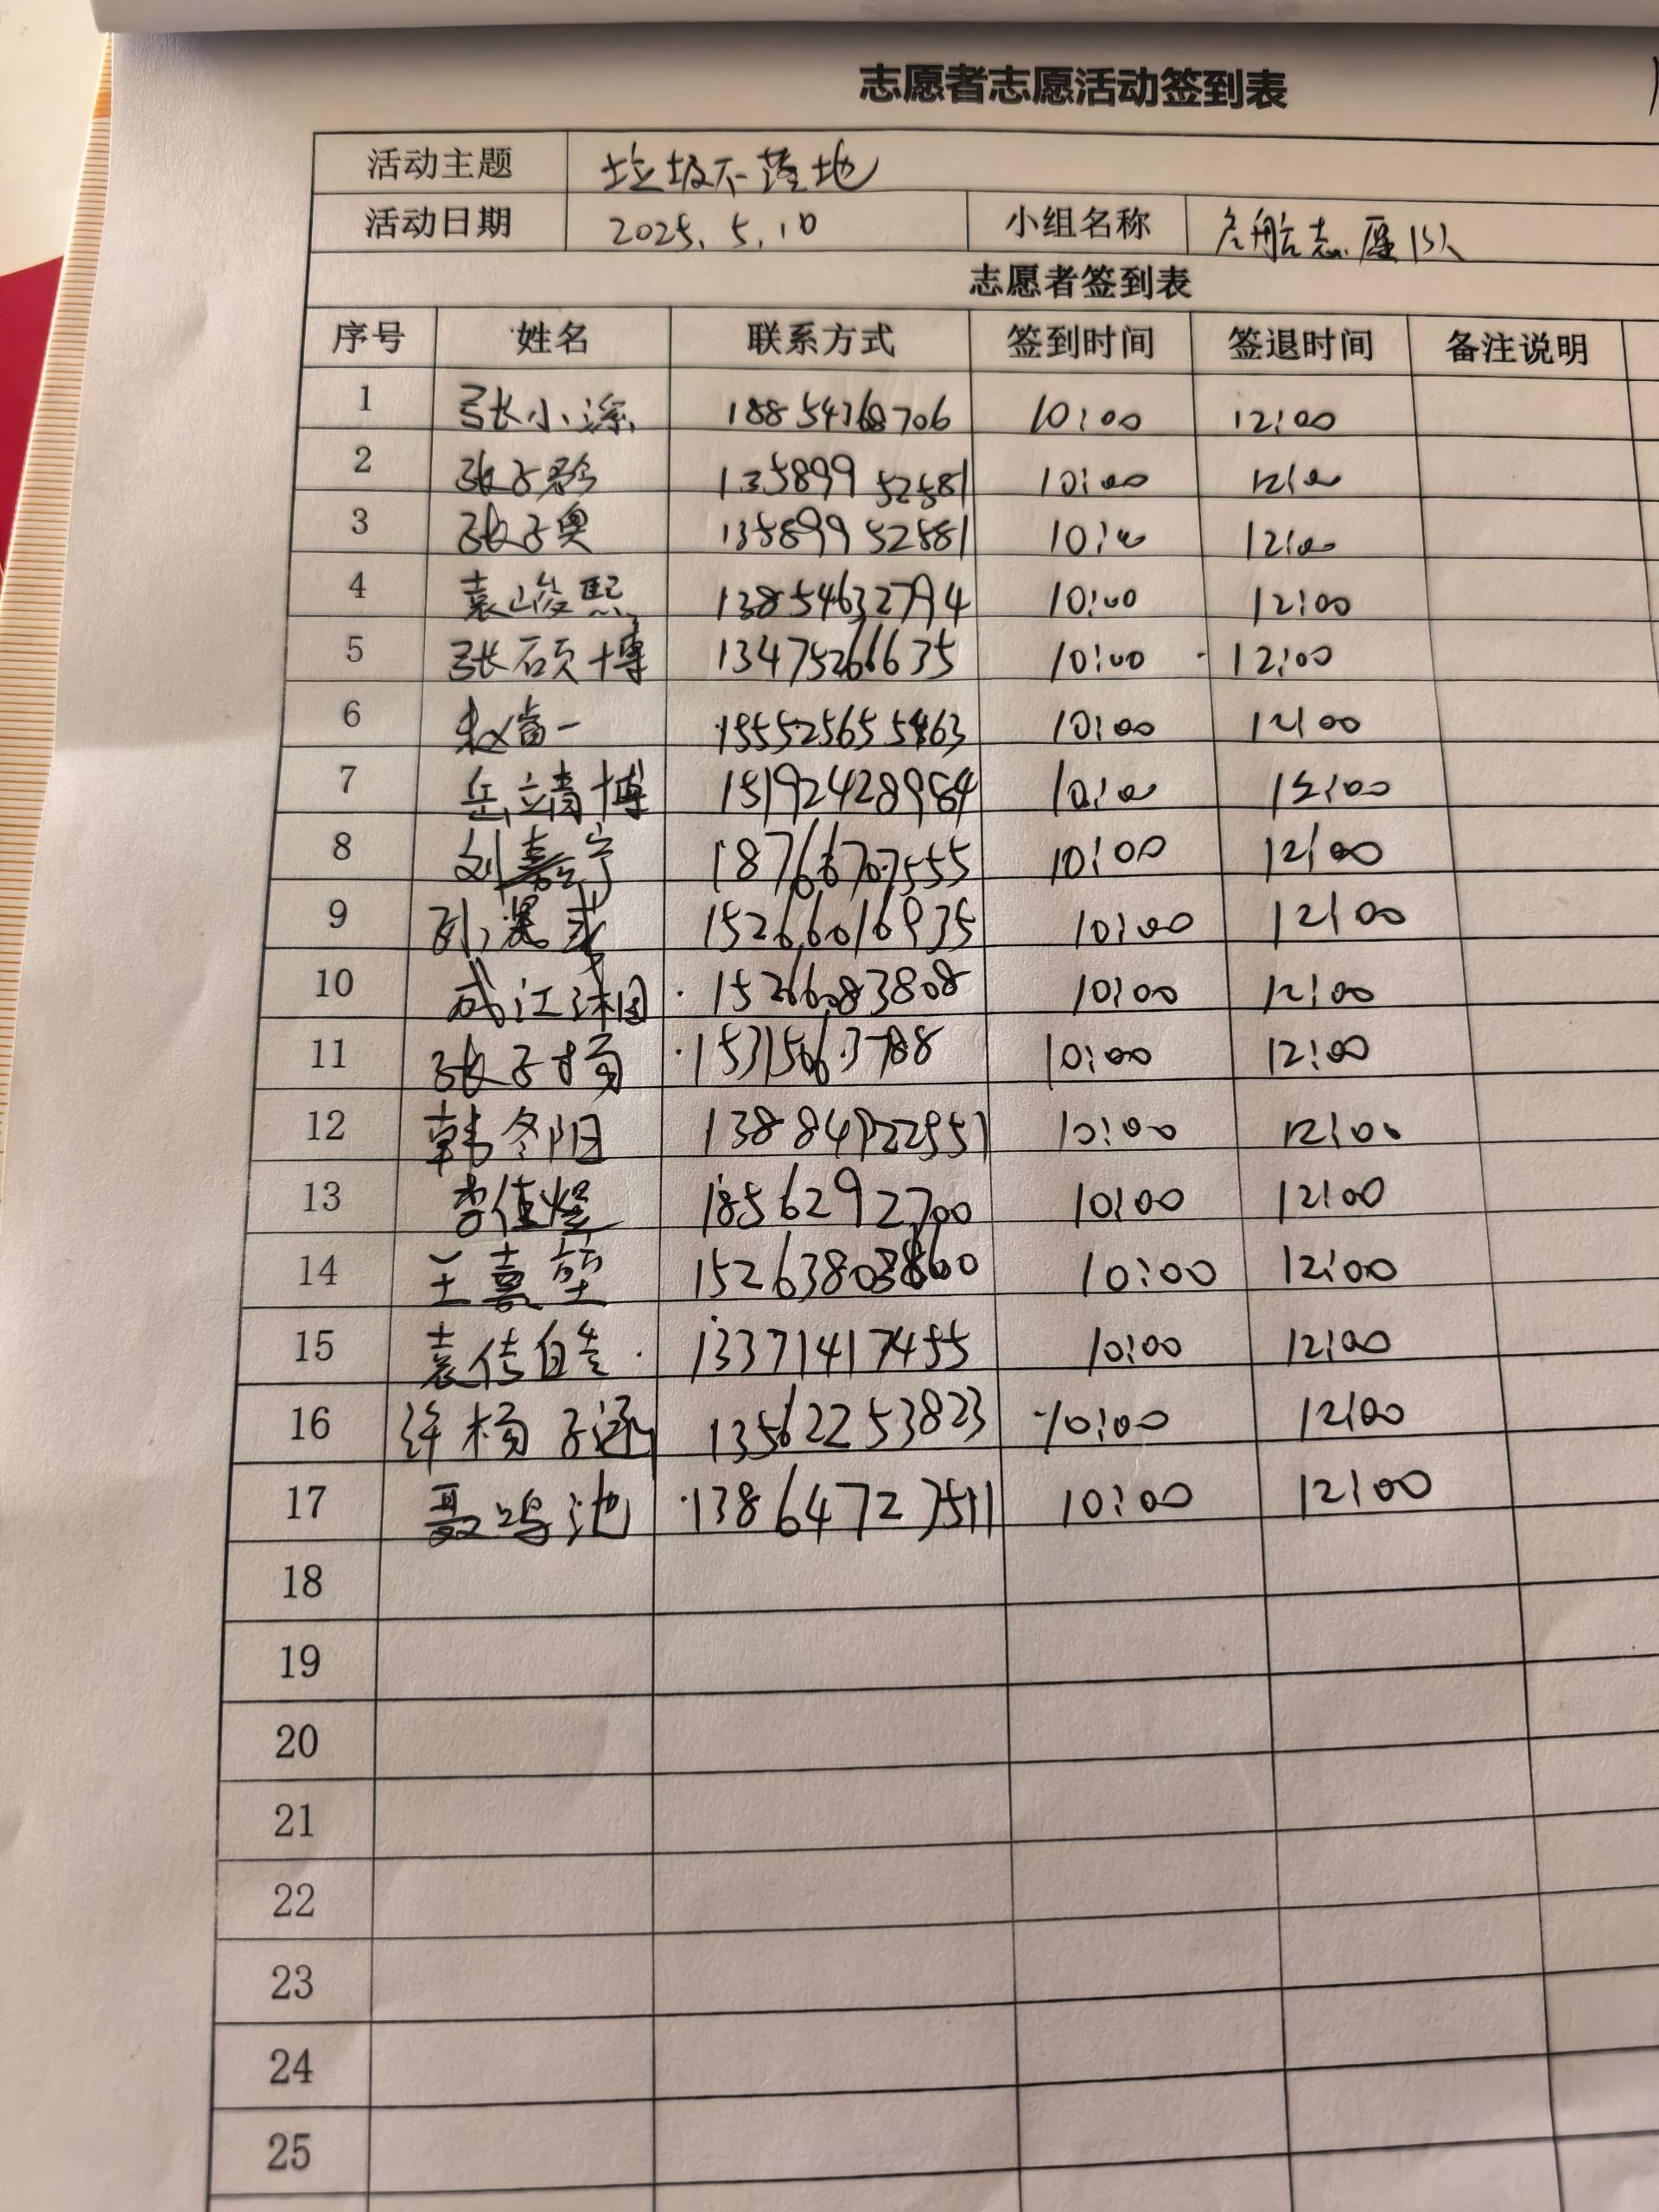 志愿者志愿活动签到表
活动主题 垃圾不落地
活动日期 2025.5.10 小组名称 启航志愿队
志愿者签到表
序号 姓名 联系方式 签到时间 签退时间 备注说明
1 张小涵 18854368706 10:00 12:00
2 张子彤 13589952581 10:00 12:00
3 张子奥 13589952581 10:00 12:00
4 袁峻熙 13854632794 10:00 12:00
5 张硕博 13475266635 10:00 12:00
6 10:00 12:00
7 岳靖博 15192428984 10:00 12:00
8 刘嘉宁 18766707555 10:00 12:00
9 15266016935 10:00 12:00
10 15266083808 10:00 12:00
11 张子扬 15315063788 10:00 12:00
12 韩冬阳 10:00 12:00
13 李佳煜 1856292700 10:00 12:00
14 10:00 12:00
15 袁传皓 13371417455 10:00 12:00
16 许杨子涵 13562253823 10:00 12:00
17 聂鸣池 13864727511 10:00 12:00
18
19
20
21
22
23
24
25